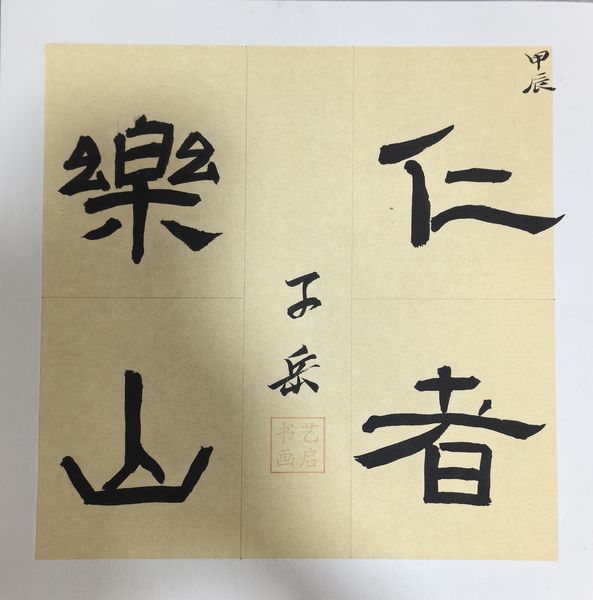 甲辰
仁者
樂山
子岳
艺启
书画